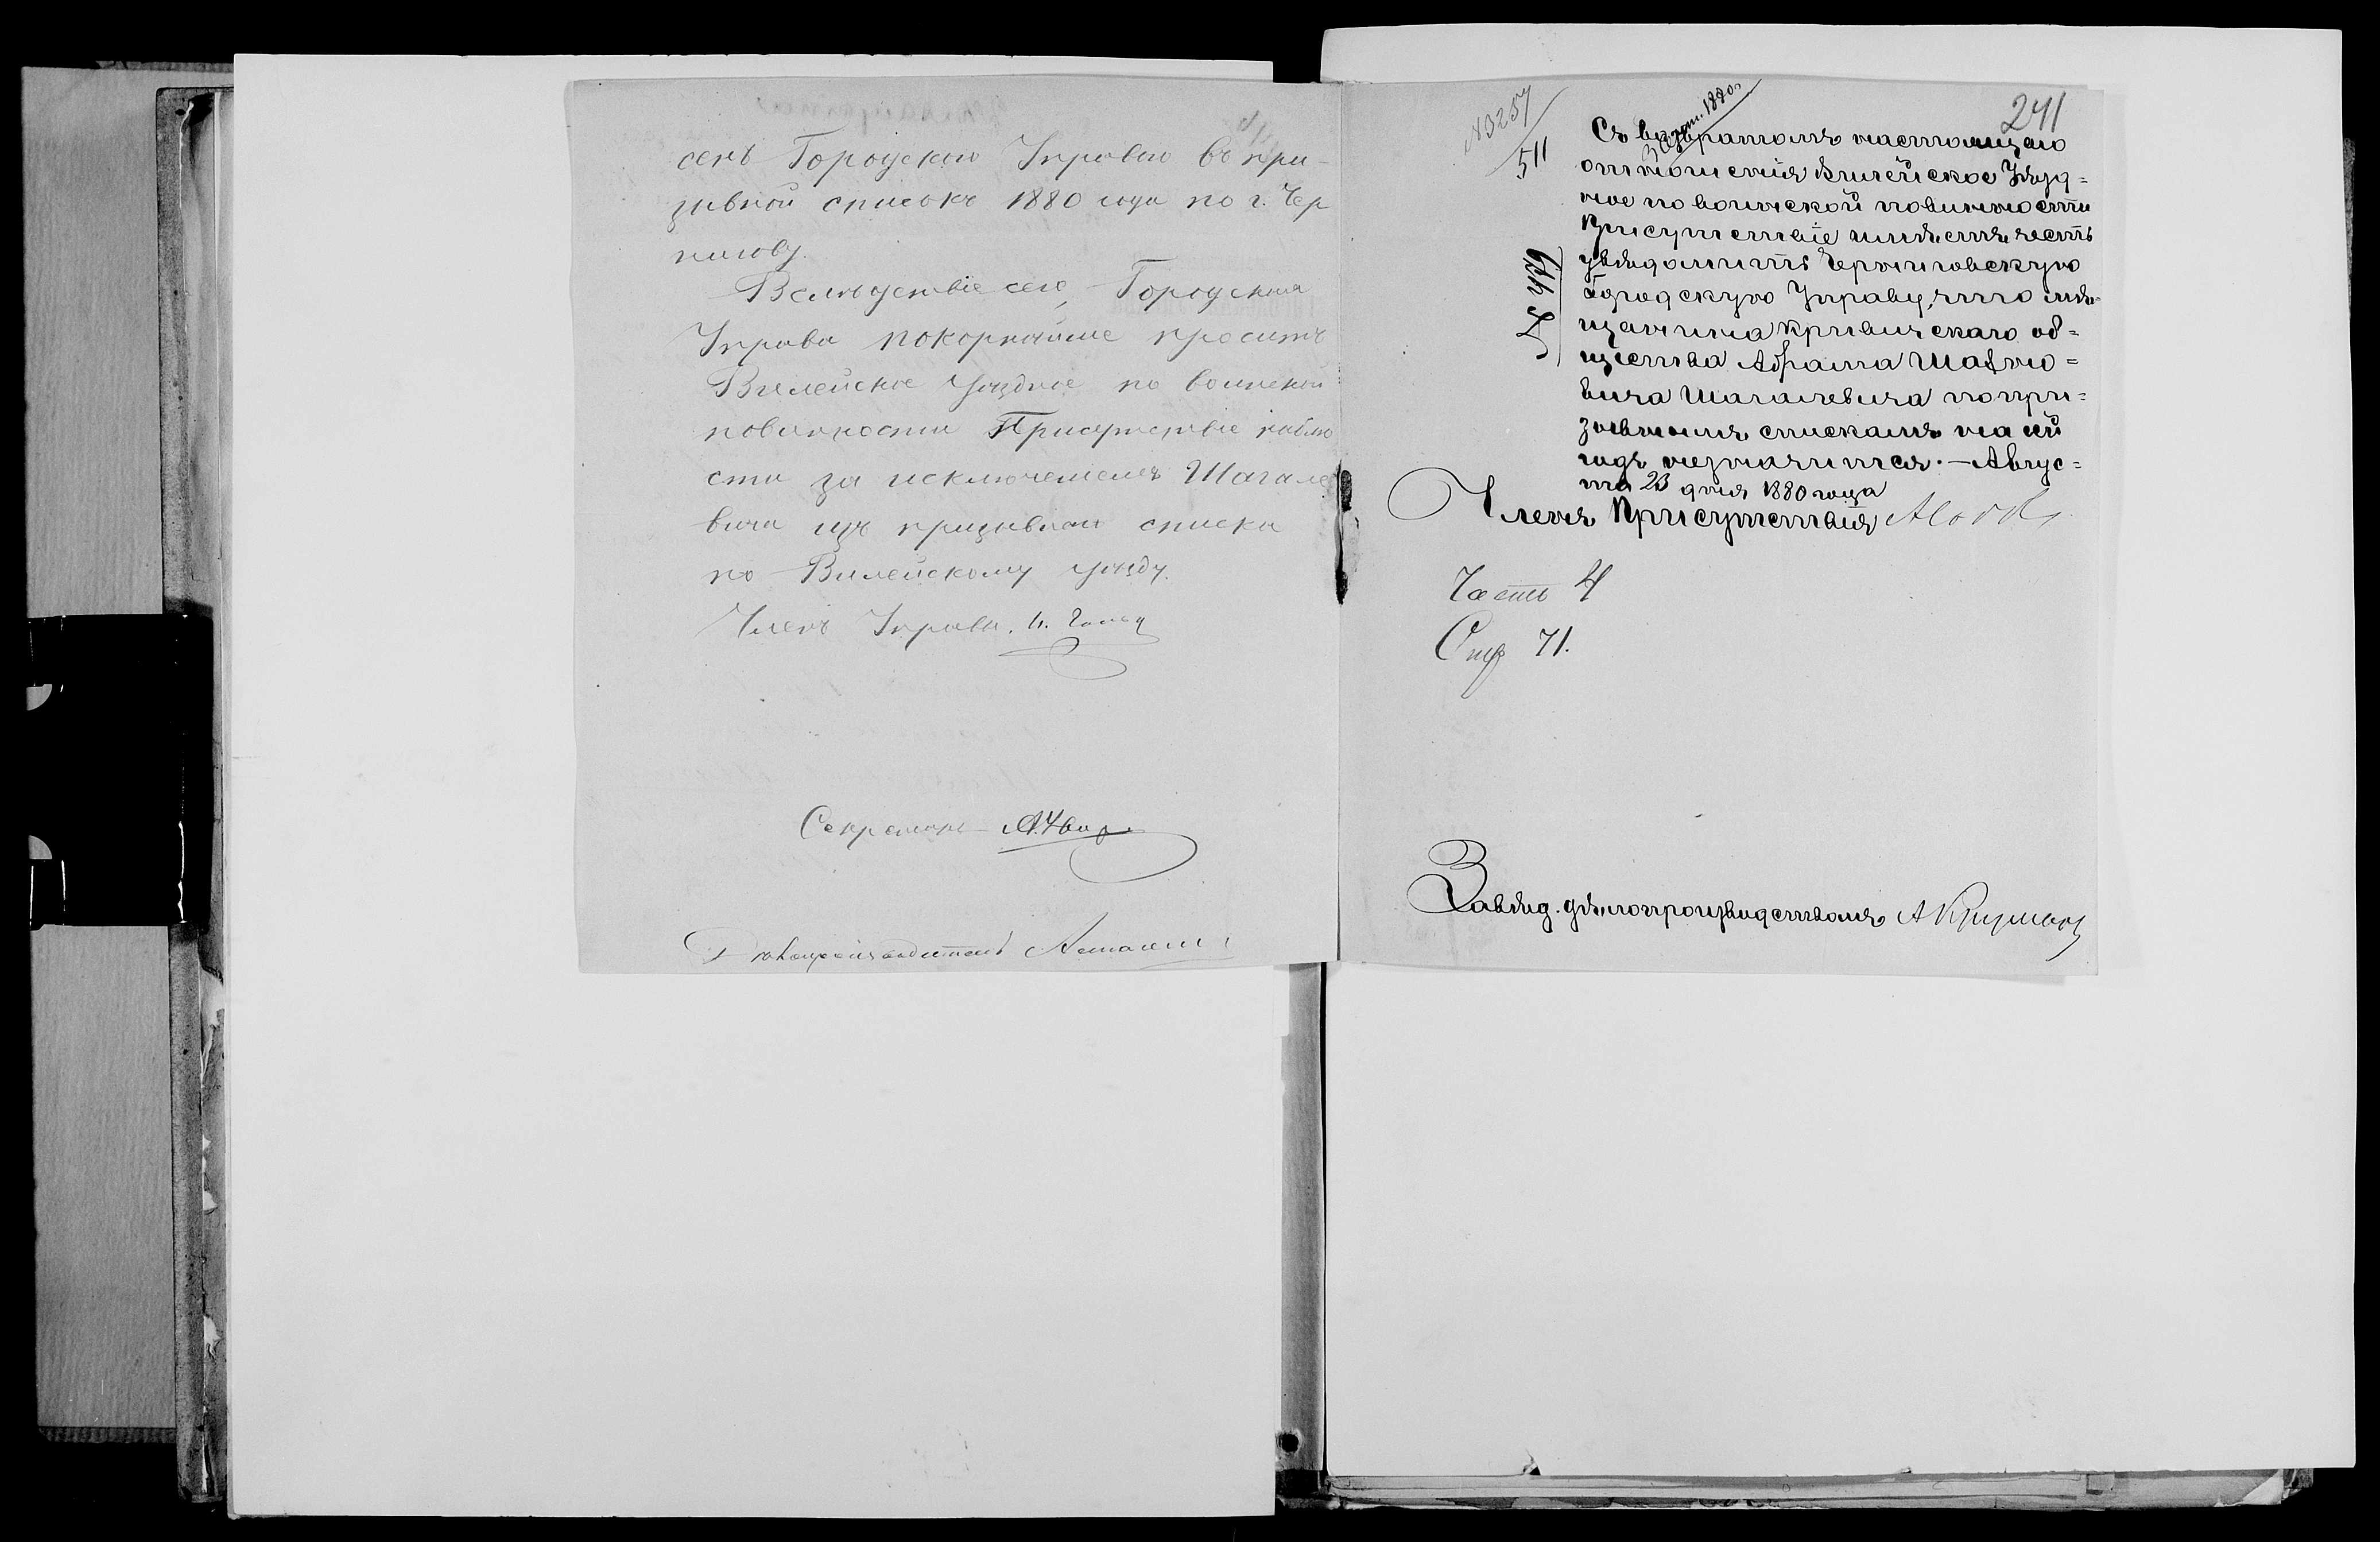 сенъ Городскою Управою въ при-
зывной списокъ 1880 года по г. Чер
нигову.
Вслѣдствіе сего, Городская
Управа покорнѣйше проситъ
Вилейское Уѣздное по воинской
повинности Присутствіе
за исключеніемъ Шагале
вича изъ призывнаго списка
по Вилейскому уѣзду.
Членъ Управы
Секретарь
Дѣлопроизводитель
241
№3257
511
1880
Съ возвратомъ настоящаго
отношенія Вилейское Уѣзд=
ное по воинской повинности
Присутствіе имѣетъ честь
увѣдомить Черниговскую
Городскую Управу, что мѣ-
щанина Кривичскаго об=
щества Абрама
вича Шагалевича по при=
зывнымъ спискамъ на сей
годъ незначится. — Авгус=
та 23 дня 1880 года
Членъ Присутствія
Часть 4
71.
Завѣд. дѣлопроизводствомъ